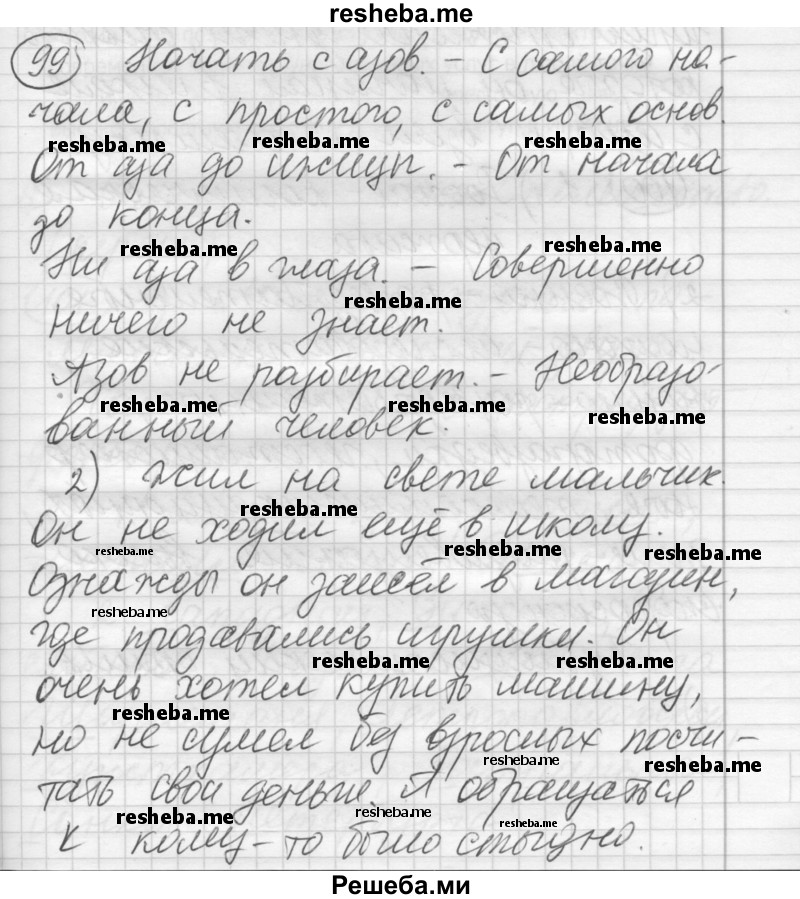 resheba.me
99) Начать с азов. – С самого на-
чала, с простого, с самых основ.
resheba.me resheba.me resheba.me
От аза до ижицы. – От начала
до конца.
resheba.me resheba.me
Ни аза в глаза. – Совершенно
resheba.me
ничего не знает.
Азов не разбирает. – Необразо-
resheba.me resheba.me resheba.me
ванный человек.
2) Жил на свете мальчик.
resheba.me
Он не ходил ещё в школу.
resheba.me resheba.me resheba.me
Однажды он зашёл в магазин,
resheba.me
где продавались игрушки. Он
resheba.me resheba.me
очень хотел купить машину,
resheba.me
но не сумел без взрослых посчи-
resheba.me resheba.me
тать свои деньги. А обращаться
resheba.me resheba.me resheba.me
к кому-то было стыдно.
Решеба.ми